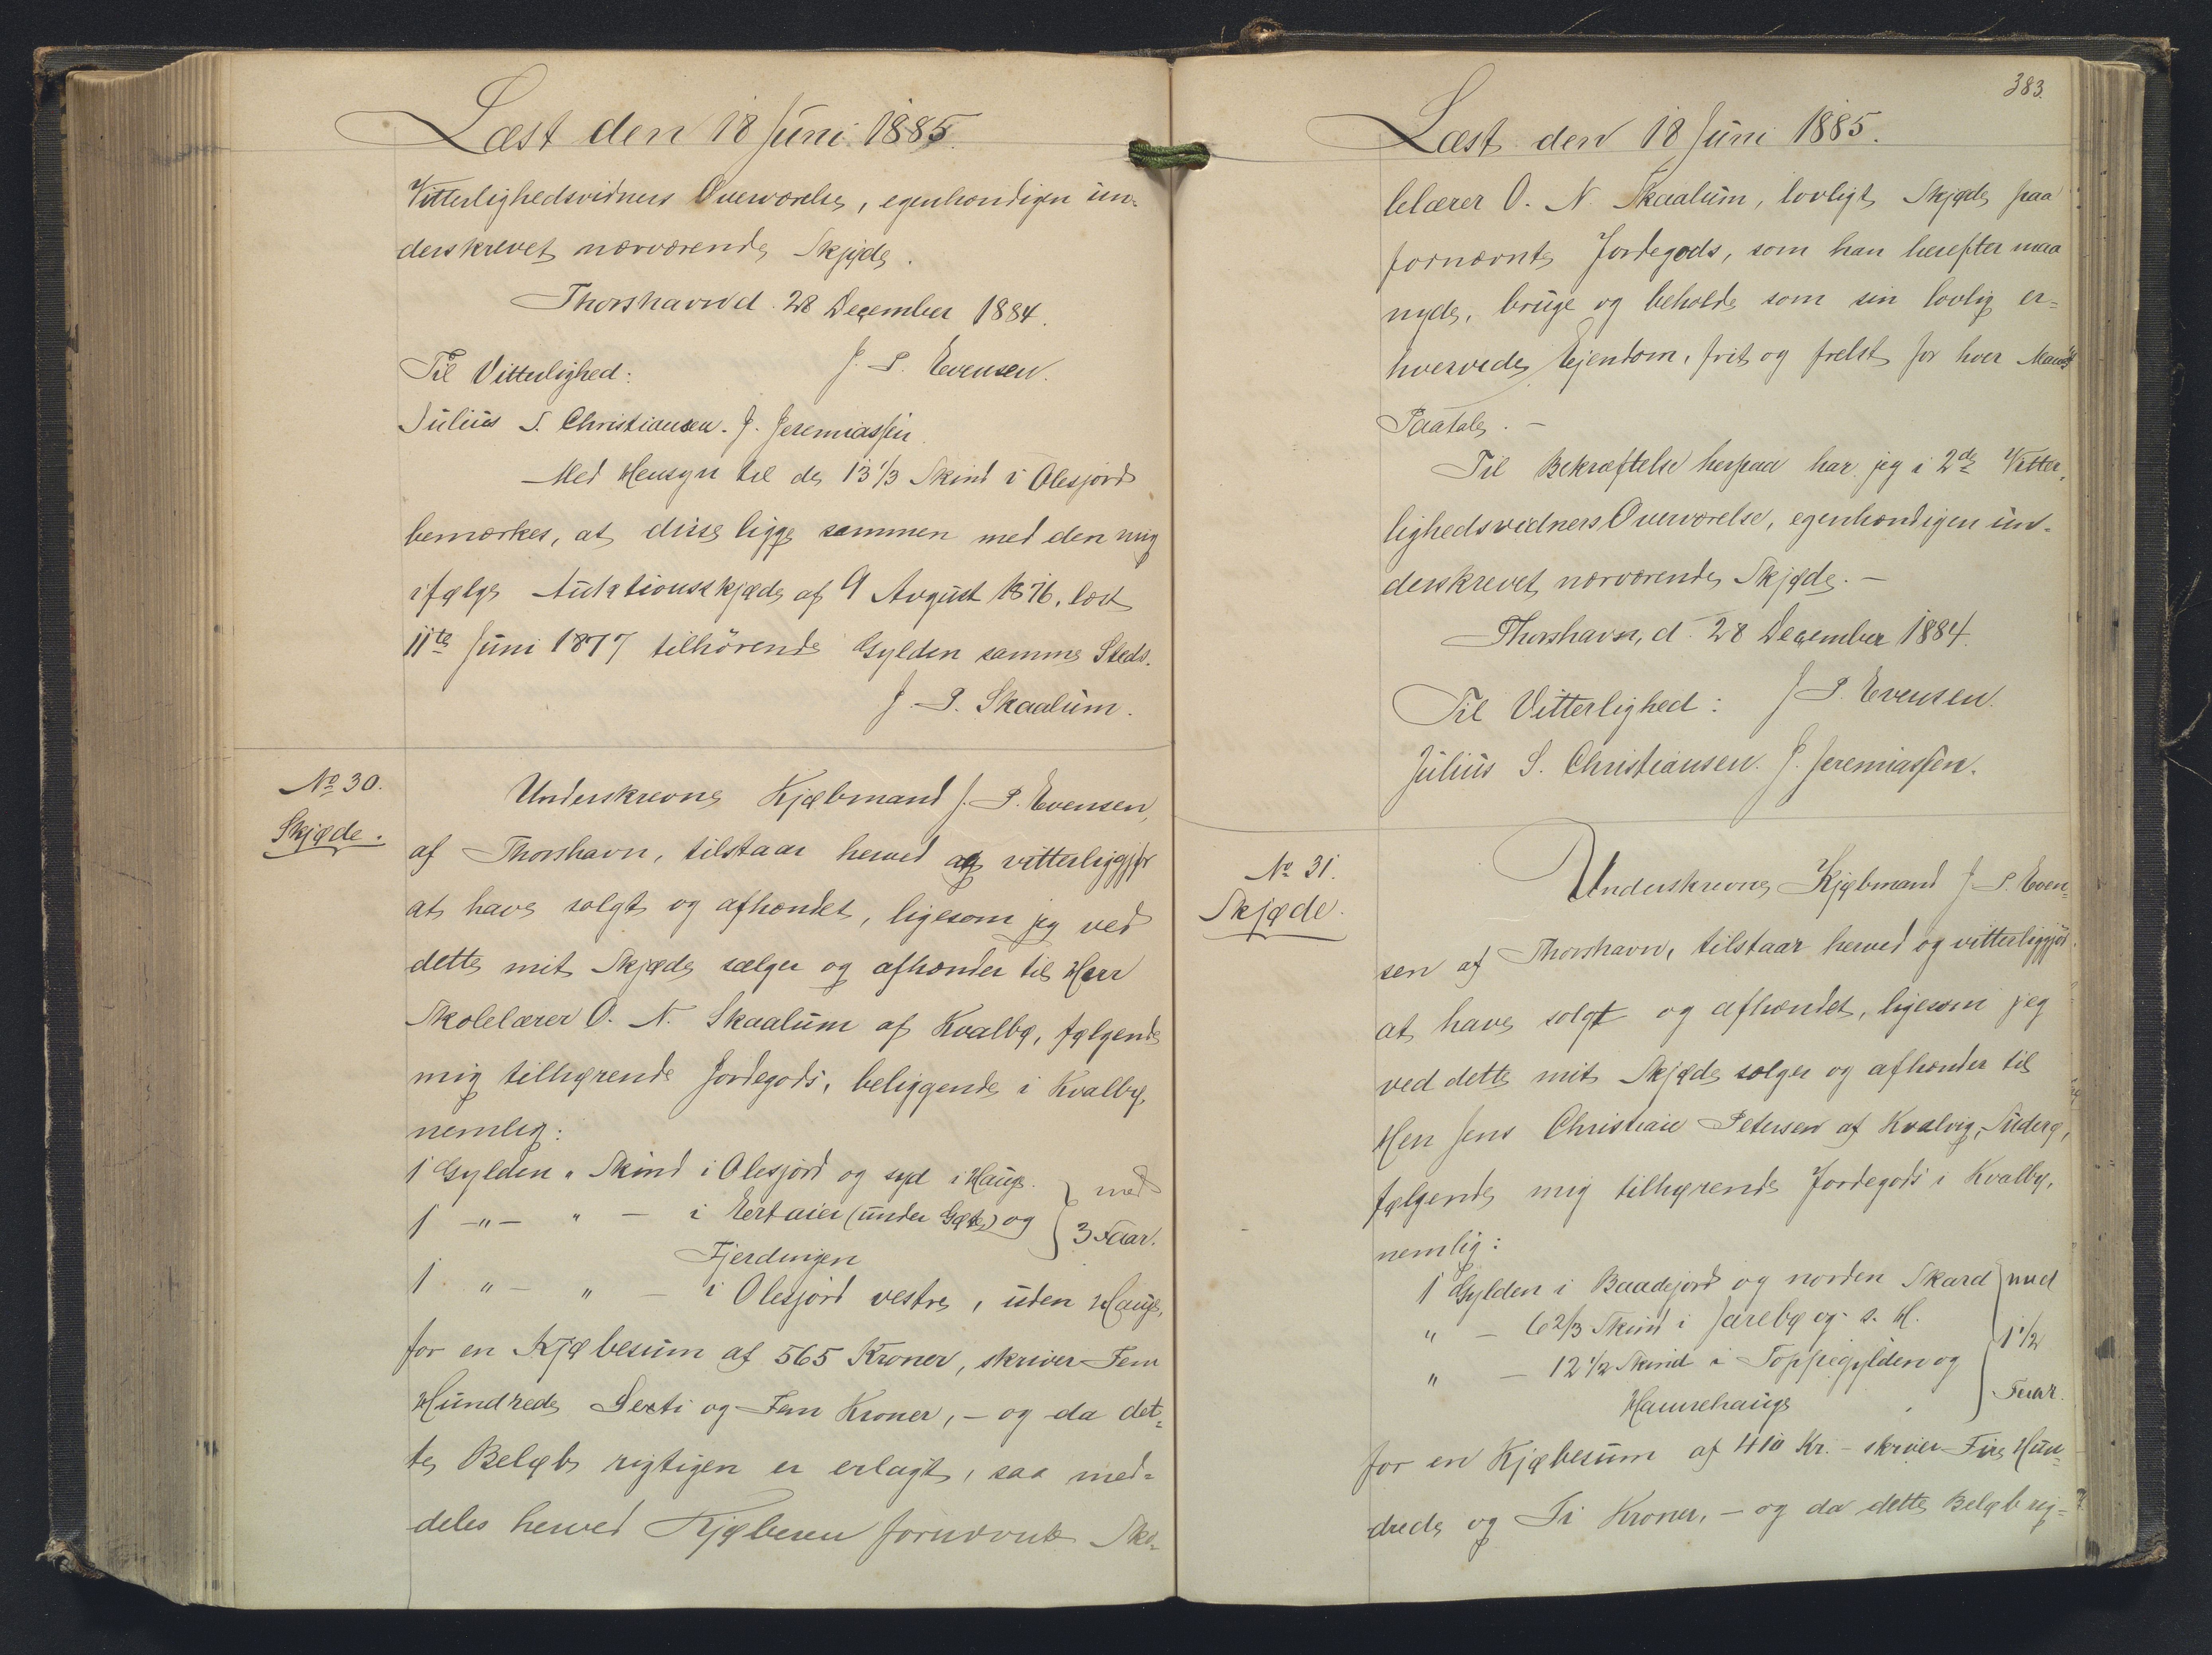 Læst den 18 Juni 1885.
Vitterlighedsvidners Overværelse, egenhændigen un-
derskrevet nærværende Skjøde.
Thorshavn d. 28 December 1884.
Til Vitterlighed: J. P. Evensen.
Julius S. Christiansen. J. Jeremiassen.
Med Hensyn til de 13 1/3 Skind i Olesjord
bemærkes, at disse ligge sammen med den mig
ifølge Auktionsskjøde af 9 August 1876, læst
11te Juni 1877 tilhörende Gylden samme Steds.
J. P. Skaalum.
No 30.
Skjøde.
Underskrevne Kjøbmand J. P. Evensen,
af Thorshavn, tilstaar herved og vitterliggjør
at have solgt og afhændet, ligesom jeg ved
dette mit Skjøde sælger og afhænder til Herr
Skolelærer O. N. Skaalum af Kvalbø, følgende
mig tilhørende Jordegods, beliggende i Kvalbø,
nemlig:
1 Gylden " Skind i Olesjord og syd i Hauge. } med
1 -"- " - i (under Gøte) og } 3 Faar.
Fjerdingen
1 " - " - i Olesjord vestre, uden Hauge,
for en Kjøbesum af 565 Kroner, skriver Fem
Hundrede Sexti og Fem Kroner, - og da det-
te Beløb rigtigen er erlagt, saa med-
deles herved Kjøberen fornævnte Sko-
383.
Læst den 18 Juni 1885.
lelærer O. N. Skaalum, lovligt Skjøde paa
fornævnte Jordegods, som han herefter maa
nyde, bruge og beholde som sin lovlig er-
hvervede Ejendom, frit og frelst for hver Mands
Paatale. -
Til Bekræftelse herpaa har jeg i 2de Vitter-
lighedsvidners Overværelse, egenhændigen un-
derskrevet nærværende Skjøde. -
Thorshavn, d. 28 December 1884.
Til Vitterlighed: J. P. Evensen.
Julius S. Christiansen. J. Jeremiassen.
No 31.
Skjøde.
Underskrevne Kjøbmand J. P. Even-
sen af Thorshavn, tilstaar herved og vitterliggjør
at have solgt og afhændet, ligesom jeg
ved dette mit Skjøde sælger og afhænder til
Herr Jens Christian Petersen af Kvalvig, Suderø,
følgende mig tilhørende Jordegods i Kvalbø,
nemlig:
1 Gylden i Baadejord og norden Skard } med
" - 6 2/3 Skind i Jarebø og s. H.
" - 12 1/2 Skind i Toppegylden og } 1 1/2
Hamrehauge Faar.
for en Kjøbesum af 410 Kr. - skriver Fire Hun-
drede og Ti Kroner, - og da dette Beløb rig-